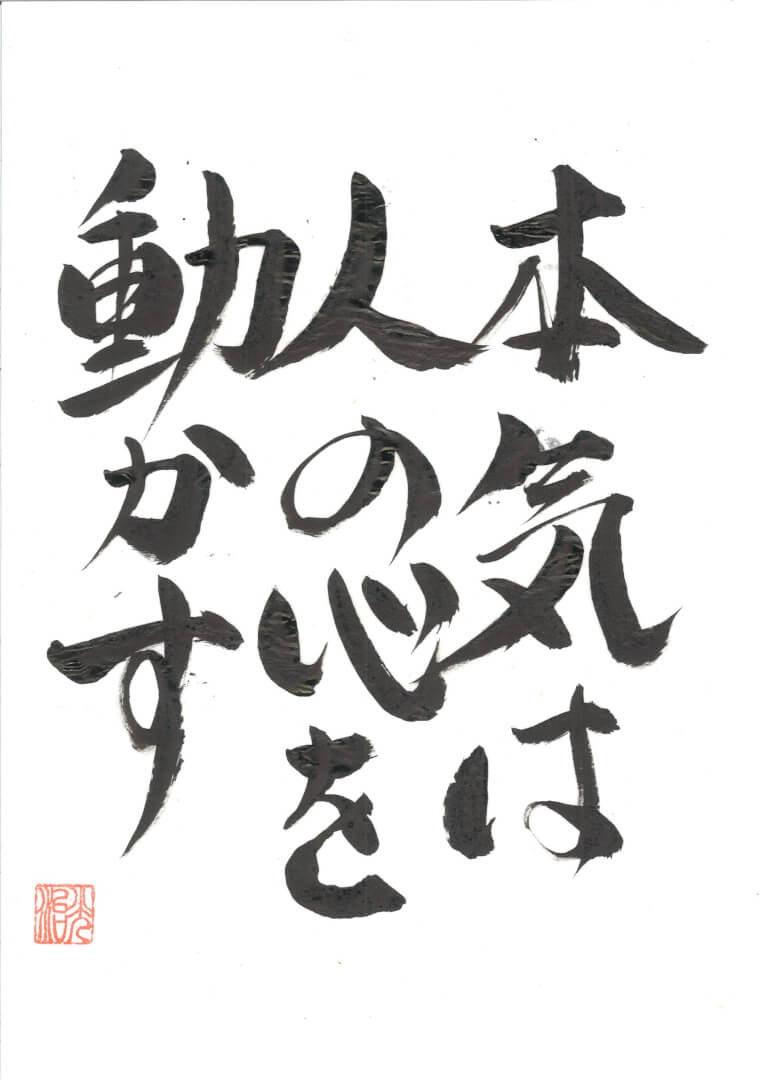 本気は
人の心を
動かす